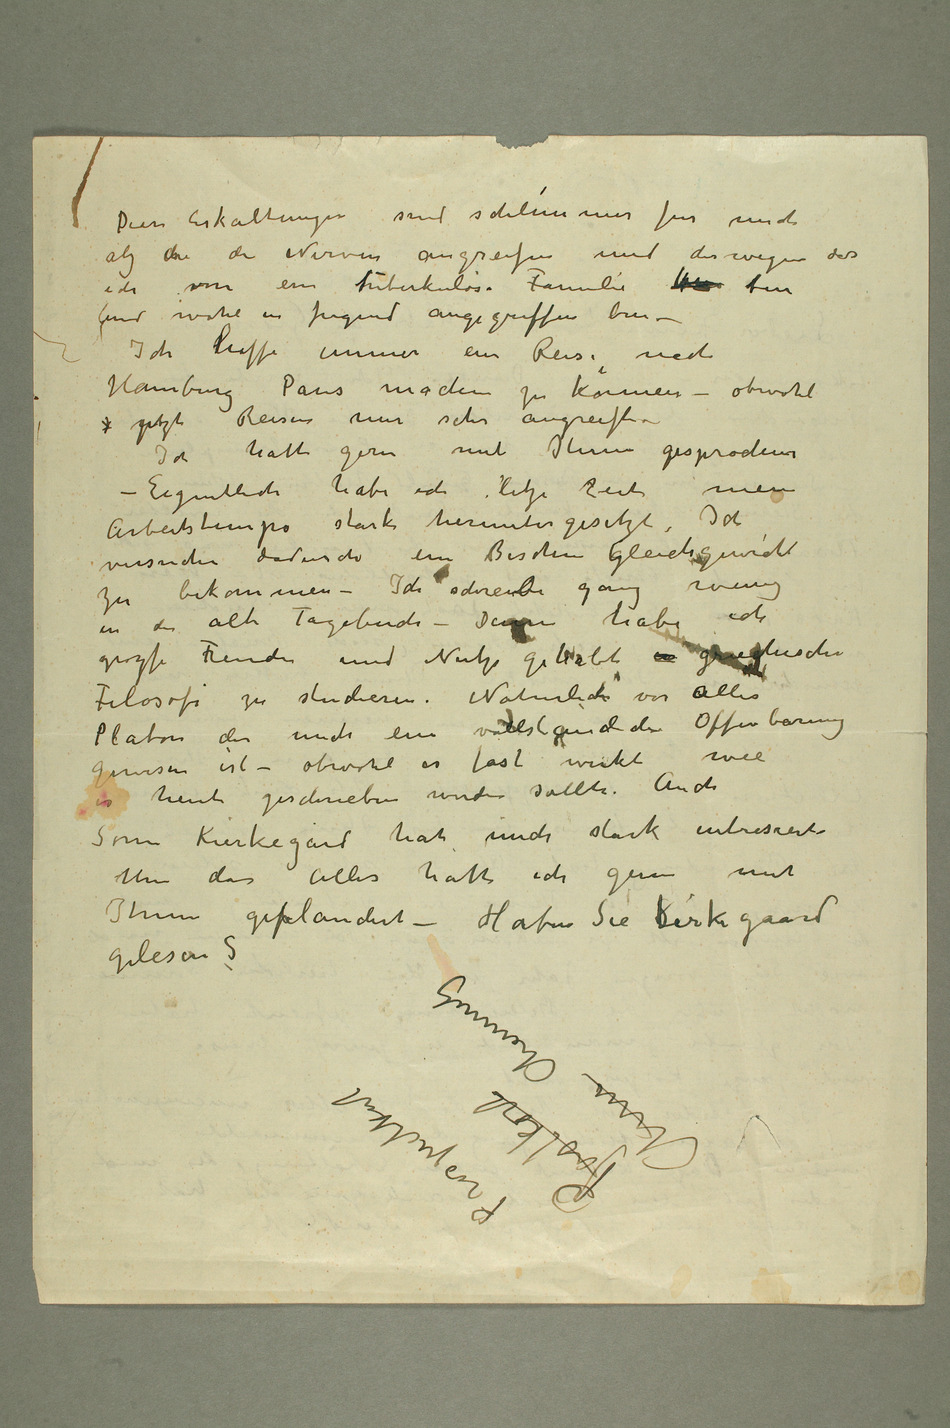 Diese Erkältungen sind schlimmer für mich
als die die Nerven angreifen und deswegen das
ich von eine tuberkuløse Familie bin
und wohl in Jugend angegriffen bin –
Ich hoffe immer eine Reise nach
Hamburg Paris machen zu können – obwohl
jetzt Reisen mir sehr angreift –
Ich hatte gern mit Ihnen gesprochen
– Eigentlich habe ich letze Zeit mein
Arbeitstempo stark heruntergesetzt, Ich
versuche dadurch ein Bischen Gleichgewicht
zu bekommen – Ich schreibe ganz wenig
in die alte Tagebuch – Denn habe ich
grosse Freude und Nutze gehabt grieghische
Filosofi zu studieren. Naturlich vor alles
Platon der mich eine vollständiche Offenbarung
gewesen ist – obwohl es fast wirkt wie
es heute geschrieben werden sollte. Auch
Sörn Kierkegård hat mich stark intresiert
Um das Alles hatte ich gern mit
Ihnen geplaudert – Haben Sie Kirkegaard
gelesen S